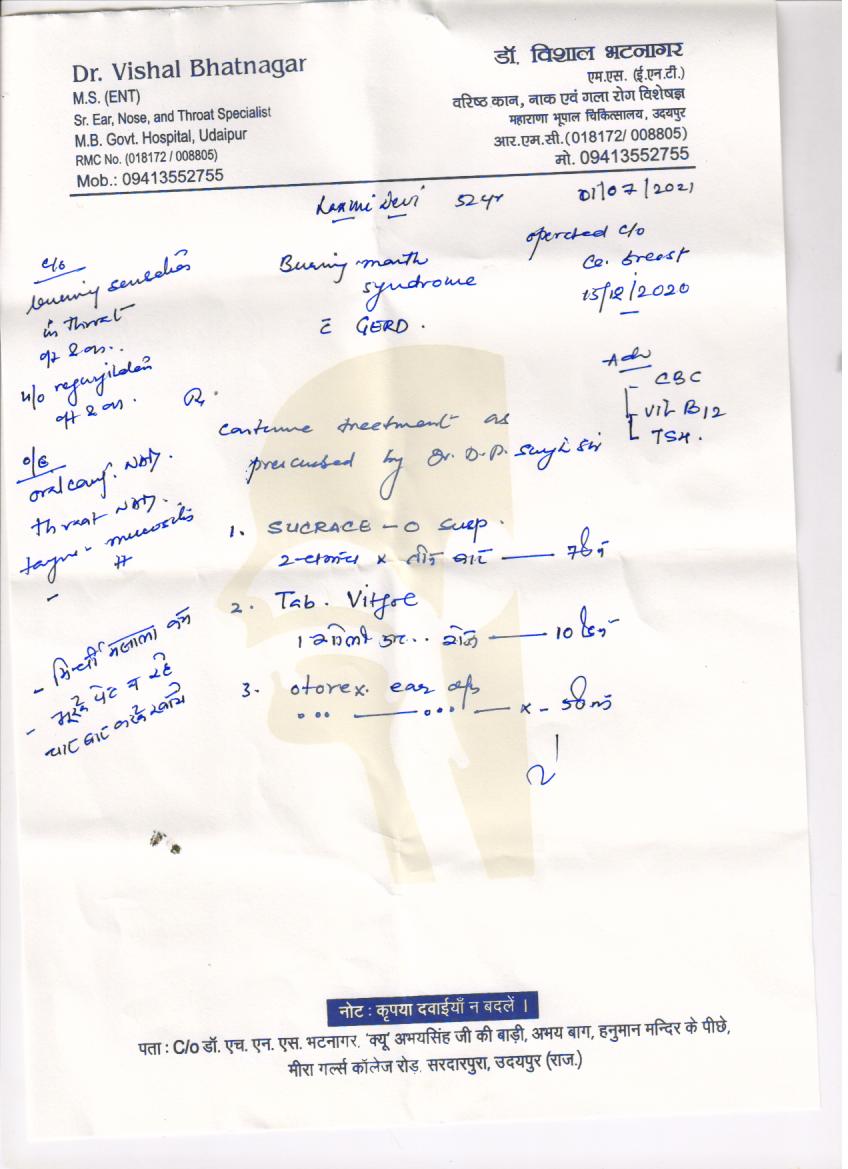 Dr. Vishal Bhatnagar
M.S. (ENT)
Sr. Ear, Nose, and Throat Specialist
M.B. Govt. Hospital, Udaipur
RMC No. (018172 / 008805)
Mob.: 09413552755
डॉ. विशाल भटनागर
एम.एस. (ई.एन.टी.)
वरिष्ठ कान, नाक एवं गला रोग विशेषज्ञ
महाराणा भूपाल चिकित्सालय, उदयपुर
आर.एम.सी.(018172/ 008805)
मो. 09413552755
Laxmi Devi 52 yr 01/07/2021
c/o
burning sensation
in throat
h/o
o/e
oral cavity NAD.
throat NAD.
mucositis
- मिर्ची मसाला कम
बार बार करके खाये
Burning mouth
syndrome
c̄ GERD.
operated c/o
Ca. breast
15/12/2020
Adv
- CBC
- Vit B12
- TSH.
Rx.
continue treatment as
prescribed by Dr. D.P. Singh Sir
1. SUCRACE - O susp.
2 चम्मच x तीन बार — 7 दिन
2. Tab.
1 गोली रोज — 10 दिन
3. otorex. ear
नोट : कृपया दवाईयाँ न बदलें ।
पता : C/o डॉ. एच. एन. एस. भटनागर, 'क्यू' अभयसिंह जी की बाड़ी, अभय बाग, हनुमान मन्दिर के पीछे,
मीरा गर्ल्स कॉलेज रोड़, सरदारपुरा, उदयपुर (राज.)